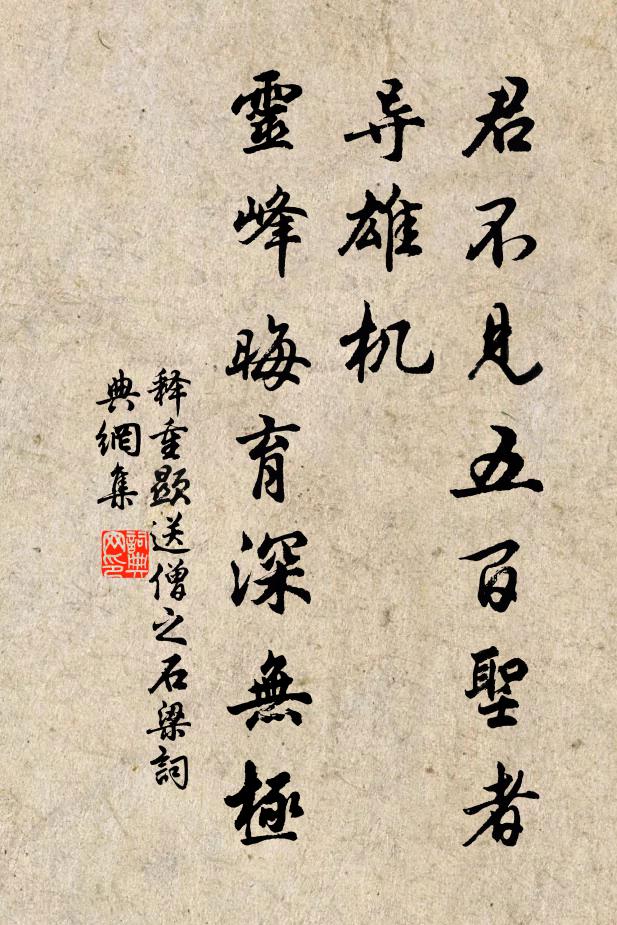 君不見五百聖者
导雄机
靈峰晦育深無極
释重顯送僧之石梁詞
典網集
詞典网印